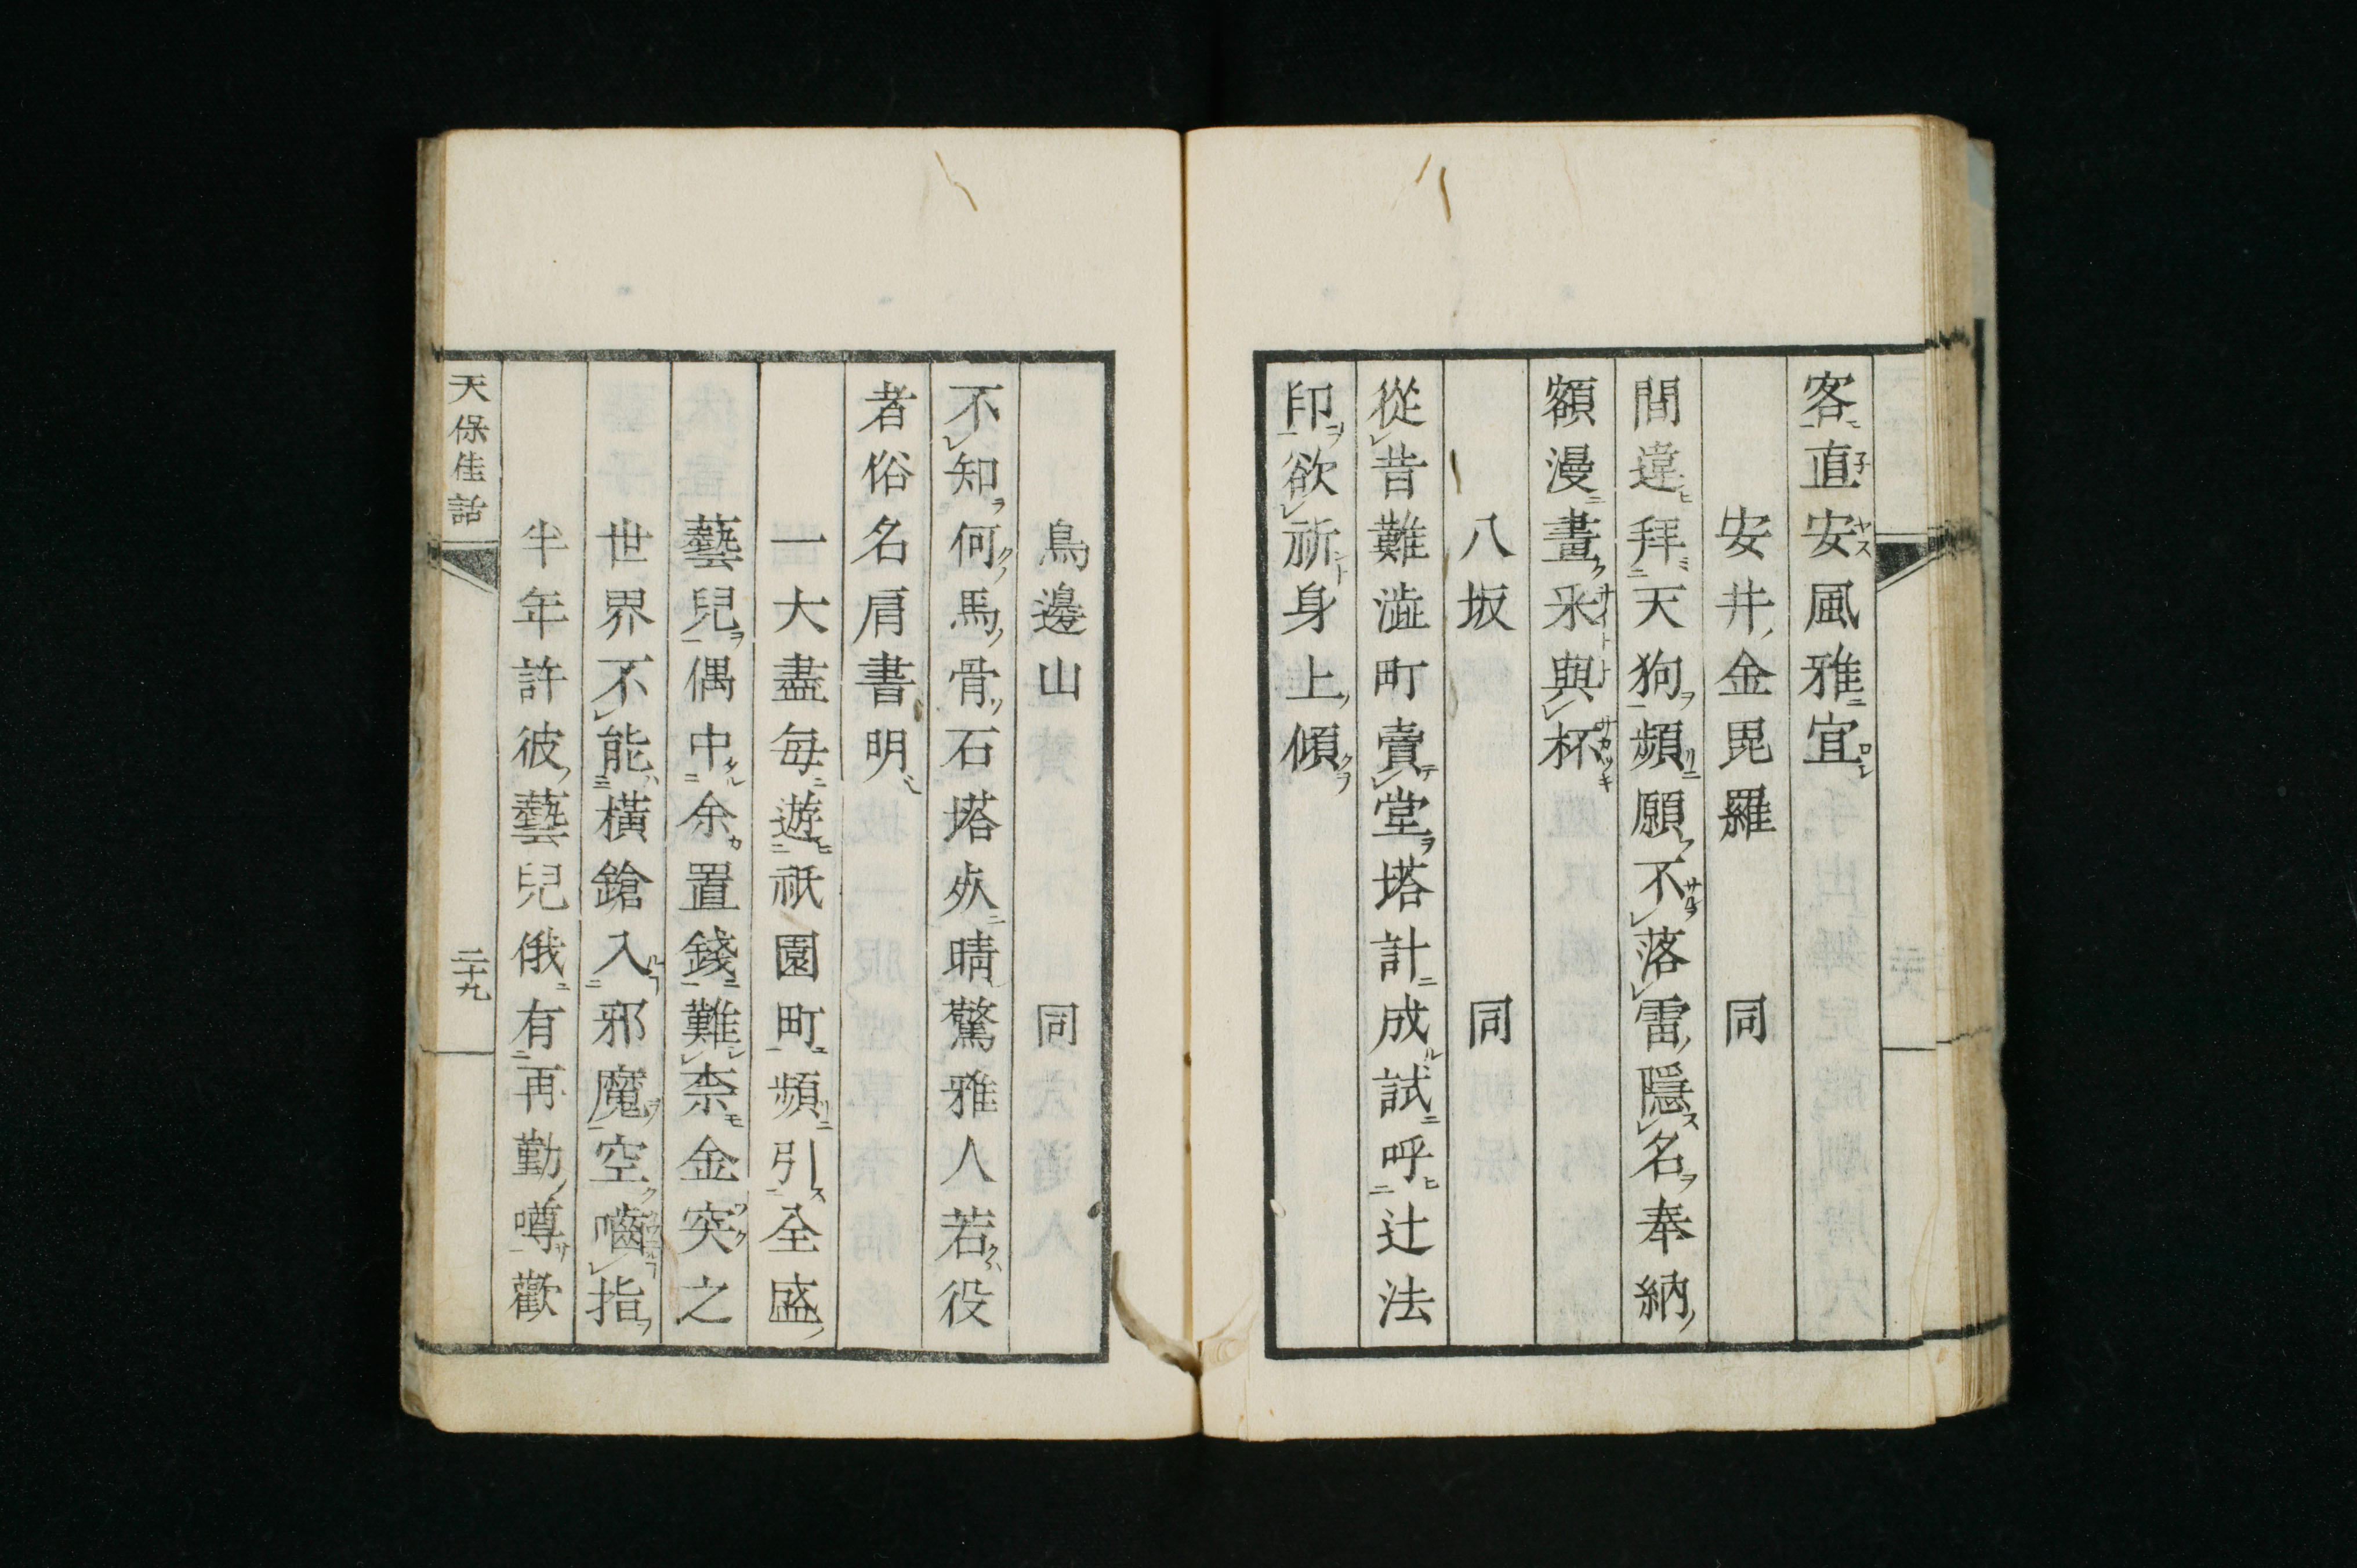 客直安風雅宜
安井金毘羅　同
間違拜天狗頻願不落雷隱名奉納
額漫畫釆與杯
八坂　同
從昔難澁町賣堂塔計成試呼辻法
印欲祈身上傾
鳥邊山　同
不知何馬骨石塔夾晴驚雅人若役
者俗名肩書明
一大盡每遊祇園町頻引全盛
藝兒偶中余置錢難柰金突之
世界不能橫鎗入邪魔空嚙指
半年許彼藝兒俄有再勤噂歡
天保佳話
二十九